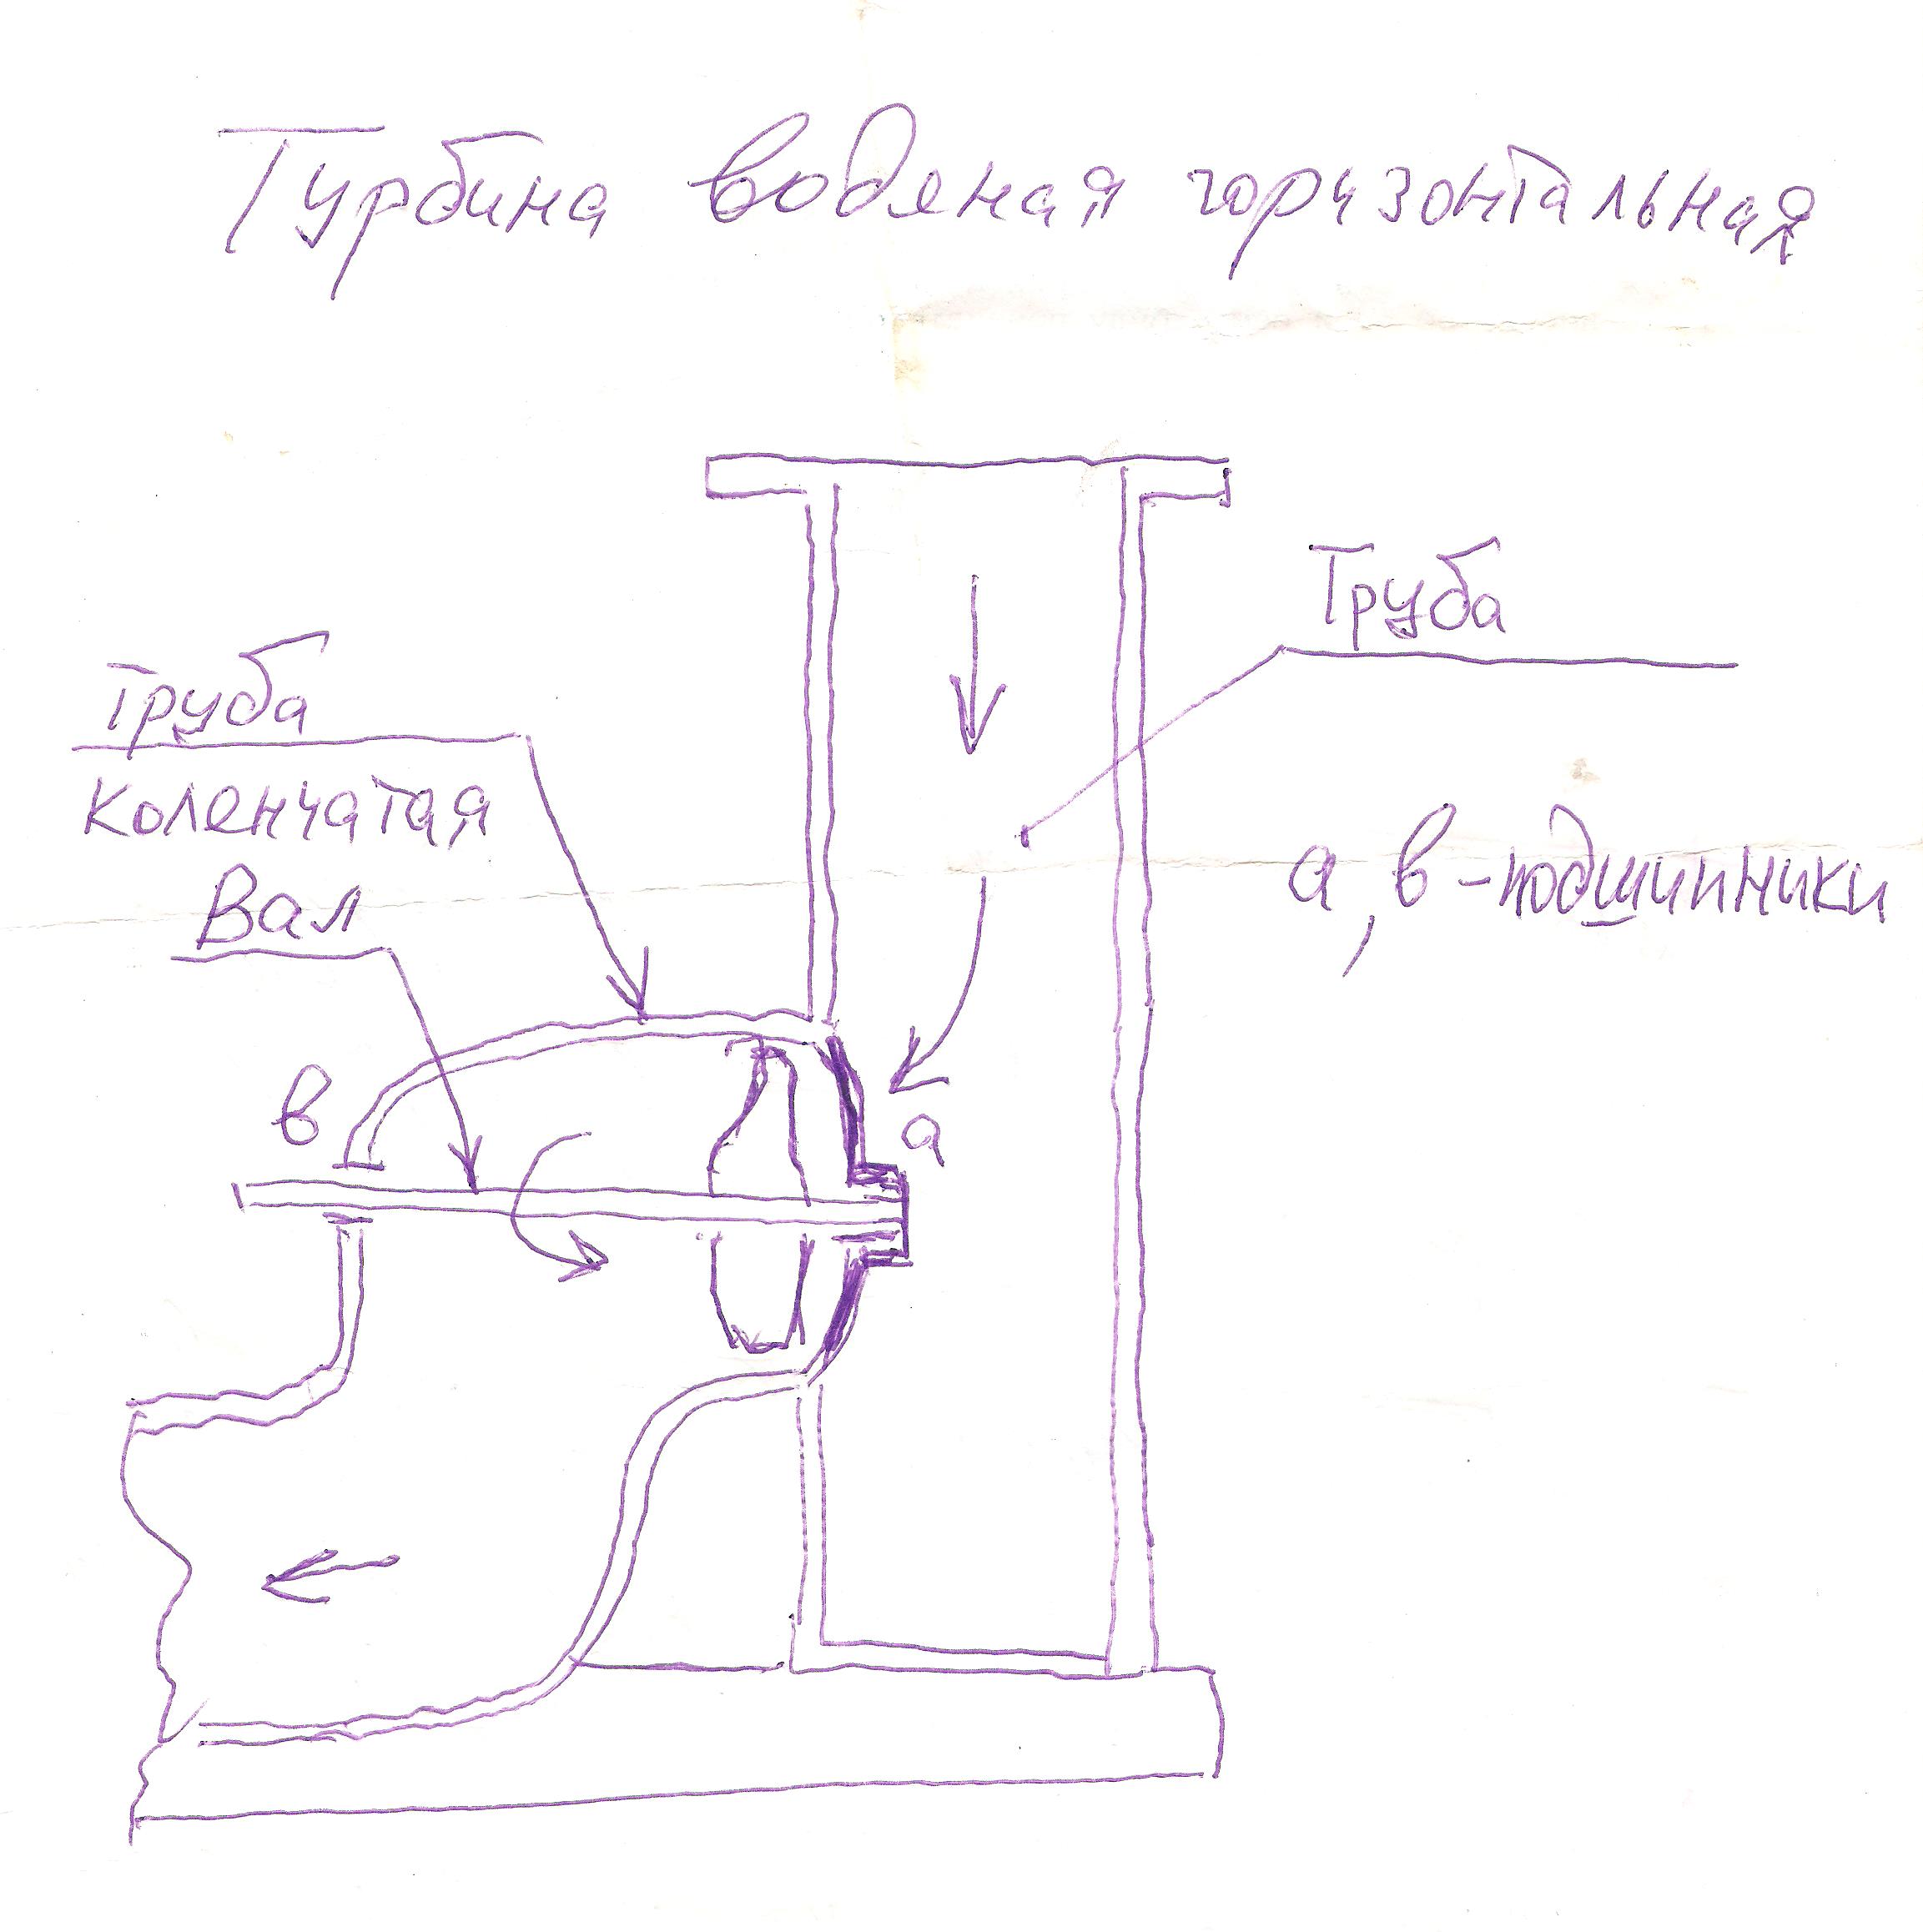 Турбина водяная горизонтальная
Труба
Труба
коленчатая
Вал
а, в - подшипники
в
а